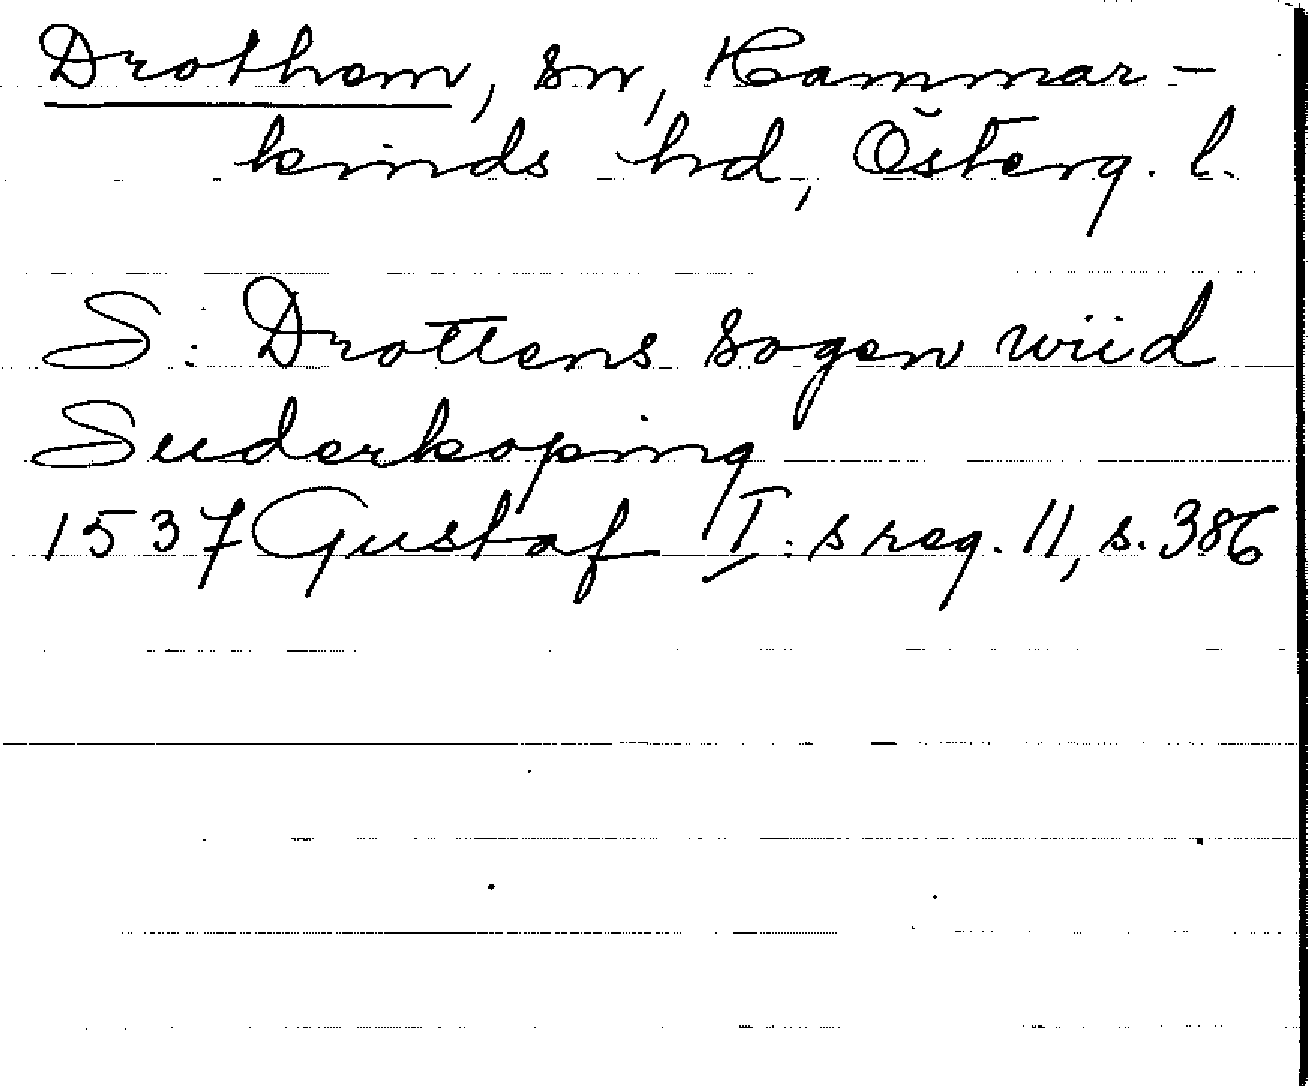 Drothem, sn, Hammar-
kinds hd, Österg. l.
S: Drottens sogen wiid
Suderkoping
1537 Gustaf I:s reg. 11, s. 386